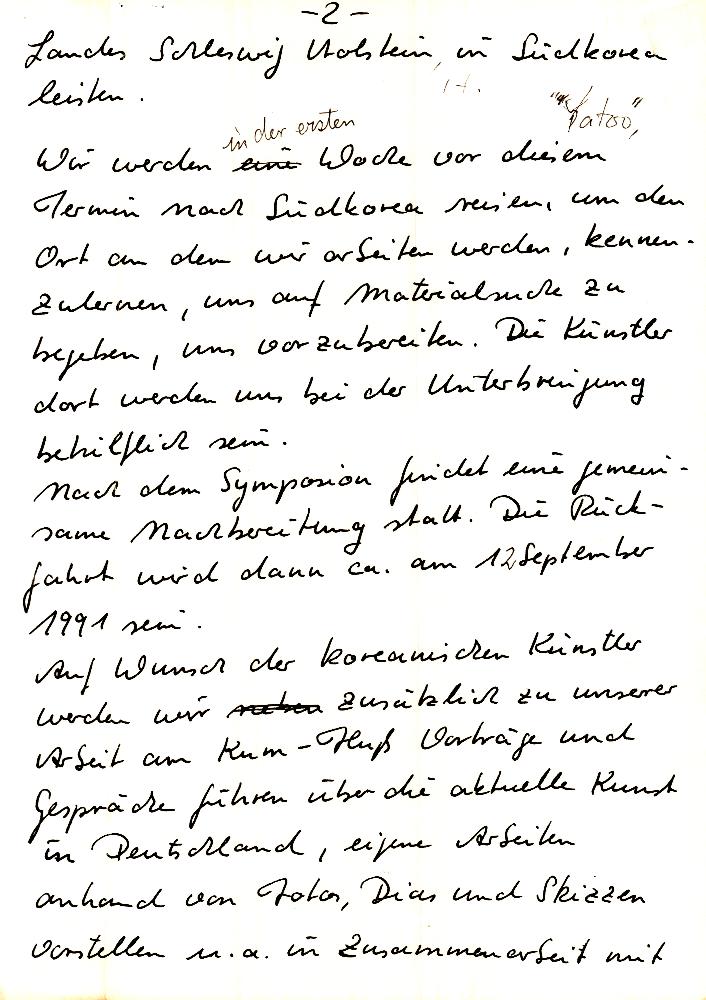 -2-
Landes Schleswig Holstein, in Südkorea
leisten.
in der ersten
Wir werden eine Woche vor diesem
Termin nach Südkorea reisen, um den
Ort an dem wir arbeiten werden, kennen-
zulernen, uns auf Materialsuche zu
begeben, uns vorzubereiten. Die Künstler
dort werden uns bei der Unterbringung
behilflich sein.
Nach dem Symposion findet eine gemein-
same Nachbereitung statt. Die Rück-
fahrt wird dann ca. am 12 September
1991 sein.
Auf Wunsch der koreanischen Künstler
werden wir neben zusätzlich zu unserer
Arbeit am Kum-Fluß Vorträge und
Gespräche führen über die aktuelle Kunst
in Deutschland, eigene Arbeiten
anhand von Fotos, Dias und Skizzen
vorstellen u.a. in Zusammenarbeit mit